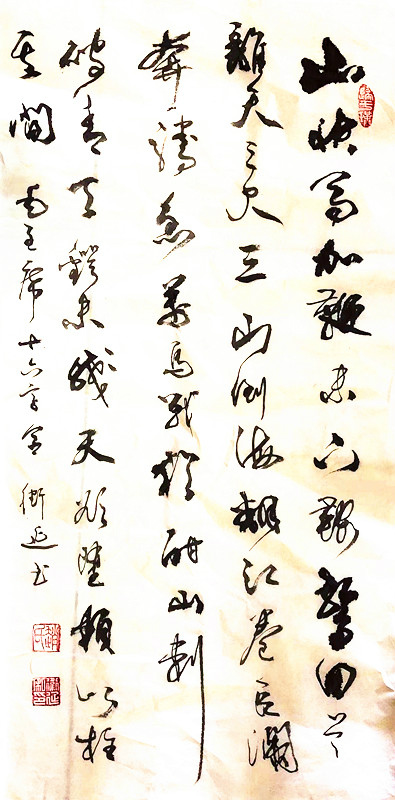 山快馬加鞭未下鞍驚回首
離天三尺三山倒海翻江卷巨瀾
奔騰急萬馬戰猶酣山刺
破青天鍔未殘天欲墮賴以柱
其間 毛主席十六字令 衛延书